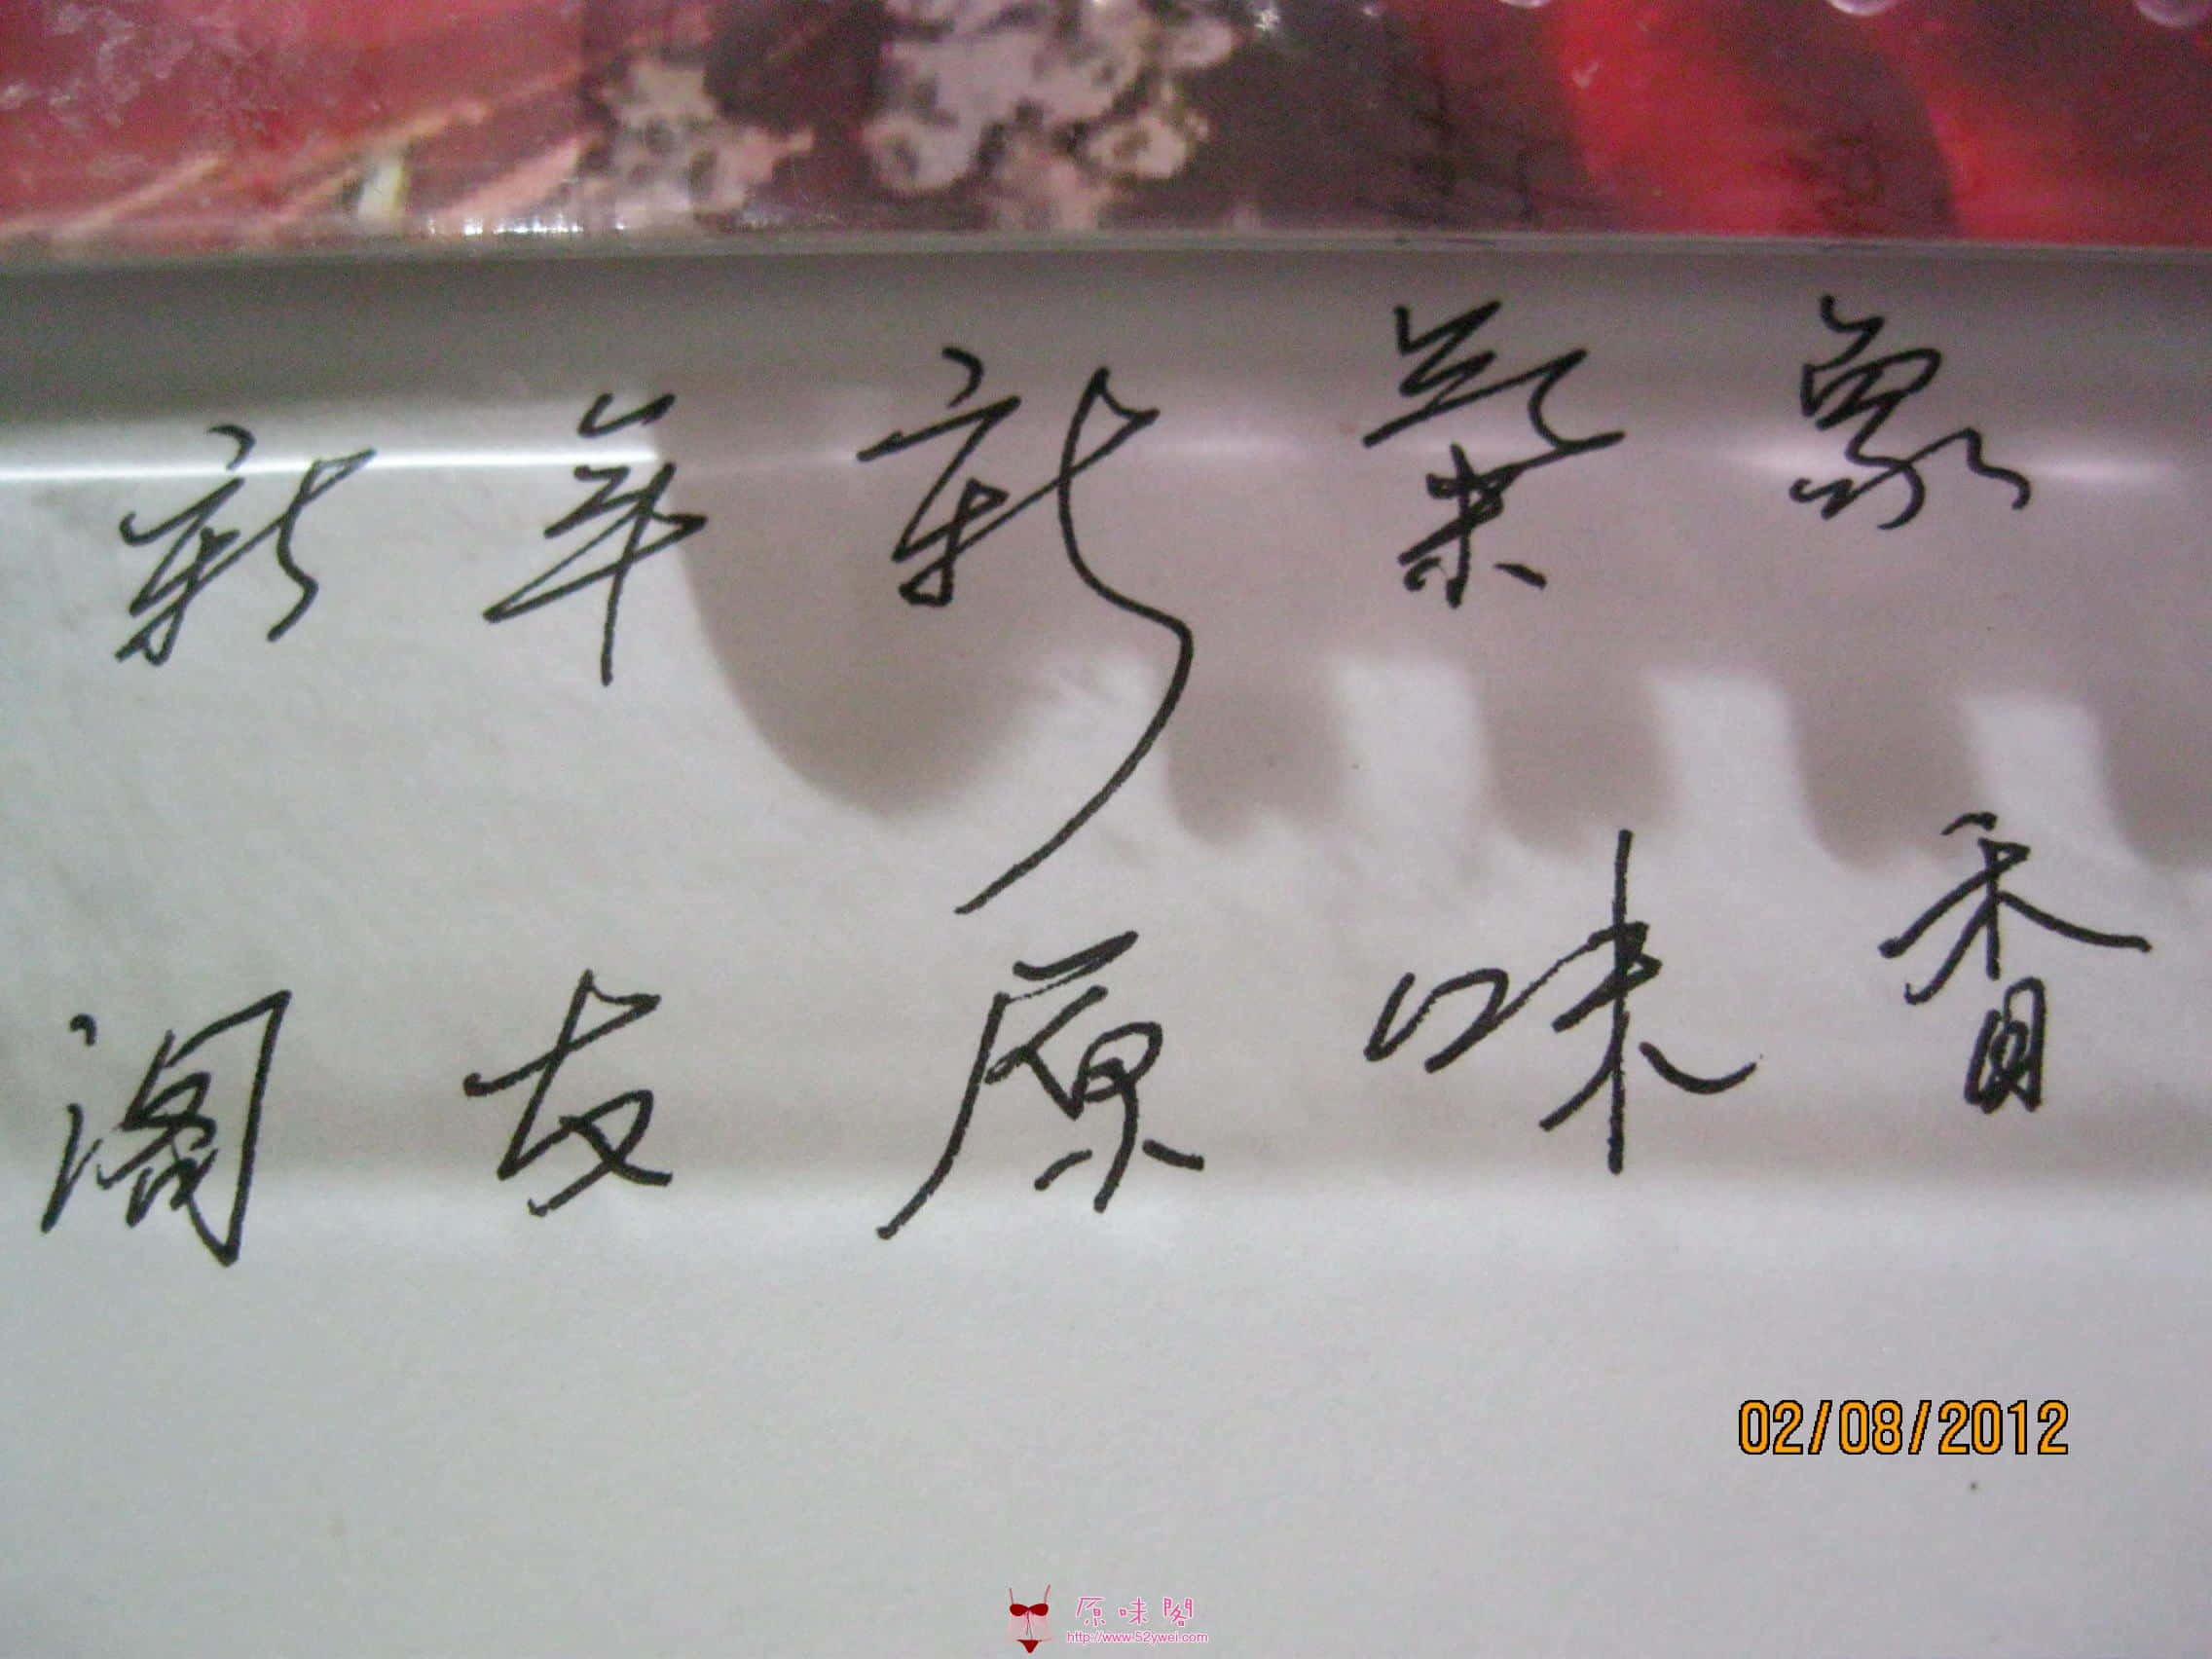 新年新景象
阁友原味香
02/08/2012
原味閣
http://www.52ywei.com